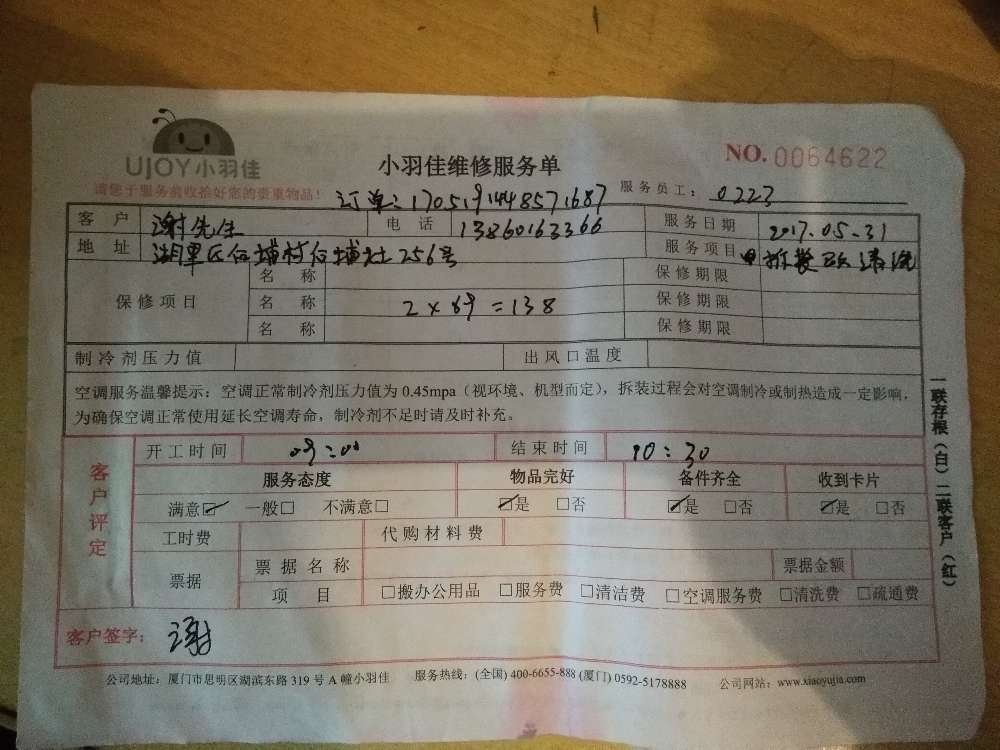 UJOY小羽佳
小羽佳维修服务单
NO. 0064622
请您于服务前收拾好您的贵重物品!
订单:1705191448571687
服务员工: 0223
客 户 谢先生 电 话 13860163366 服务日期 2017.05.31
地 址 湖里区后埔村后埔社256号 服务项目 拆装 清洗
保修项目
名 称 保修期限
名 称 2×69=138 保修期限
名 称 保修期限
制冷剂压力值 出风口温度
空调服务温馨提示:空调正常制冷剂压力值为0.45mpa(视环境、机型而定),拆装过程会对空调制冷或制热造成一定影响,
为确保空调正常使用延长空调寿命,制冷剂不足时请及时补充。
客户评定
开工时间 09:00 结束时间 10:30
服务态度 物品完好 备件齐全 收到卡片
满意☑ 一般□ 不满意□ ☑是 □否 ☑是 □否 ☑是 □否
工时费 代购材料费
票据 票据名称 票据金额
项 目 □搬办公用品 □服务费 □清洁费 □空调服务费 □清洗费 □疏通费
客户签字: 谢
公司地址:厦门市思明区湖滨东路319号A幢小羽佳 服务热线:(全国) 400-6655-888 (厦门) 0592-5178888 公司网站:www.xiaoyujia.com
一联存根(白)二联客户(红)